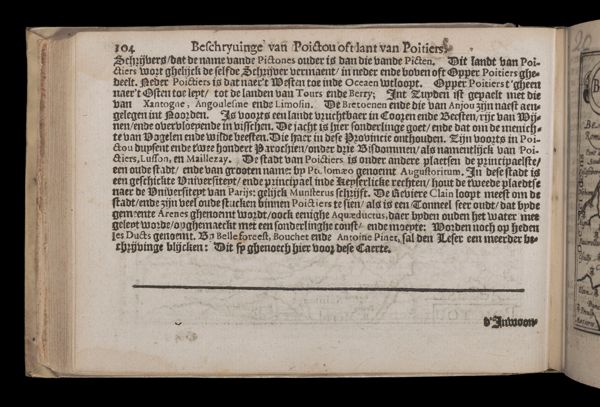 104 Beschryuinge van Poictou oft lant van Poitiers.
Schrijvers/dat de name vande Pictones ouder is dan die vande Picten. Dit landt van Poi-
ctiers wort ghelijck de selfde Schrijver vermaent/in neder ende boven oft Opper Poitiers ghe-
deelt. Neder Poictiers is dat naer't Westen toe inde Oceaen wtloopt. Opper Poitiers t'gheen
naer't Osten toe leyt/ tot de landen van Tours ende Berry; Int Zuyden ist gepaelt met die
van Xantogne, Angoulesme ende Limosin. De Bretoenen ende die van Anjou zijn naest aen-
gelegen int Noorden. Is voorts een landt vruchtbaer in Cooren ende Beesten, rijc van Wij-
nen/ende overvloepende in visschen. De jacht is hier sonderlinge goet/ ende dat om de menich-
te van Vogelen ende wilde beesten. Die haer in dese Provincie onthouden. Zijn voorts in Poi-
ctou duysent ende twee hondert Parochien/onder drie Bisdommen/ als namentlijck van Poi-
ctiers, Lusson, en Maillezay. De stadt van Poictiers is onder andere plaetsen de principaelste/
een oude stadt/ ende van grooten name: by Ptolomæo genoemt Augustoritum. In dese stadt is
een geschickte Universiteyt/ende principael inde Keyserlicke rechten/ hout de tweede plaedtse
naer de Universiteyt van Parijs: gelijck Munsterus schrijft. De Reviere Clain loopt meest om de
stadt/ende zijn veel oude stucken binnen Poictiers te sien/ als is een Tonneel seer oudt/ dat byde
gemeente Arenes ghenoemt wordt/oock eenighe Aquæductus, daer byden ouden het water met
geleyt worde/opghemaeckt met een sonderlinghe const/ ende moeyte: Worden noch op heden
les Ducts genoemt. By Belleforest, Bouchet ende Antoine Pinet, sal den Leser een meerder be-
schrijvinge blijcken: Dit sy ghenoech hier voor dese Caerte.
d'Inwoon-